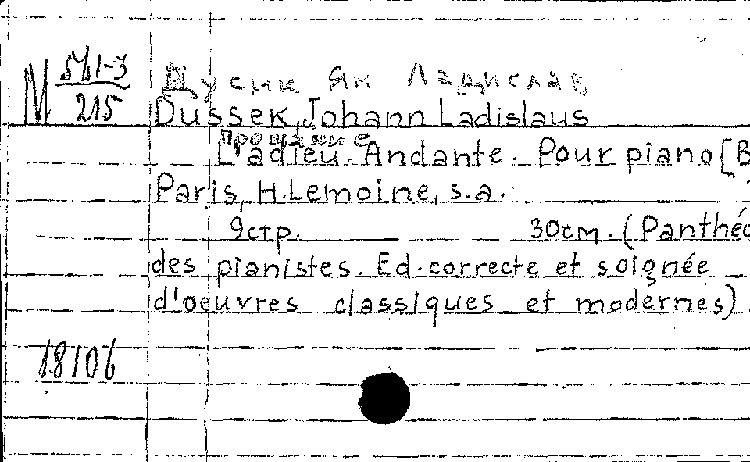 М 541-3
215
Дусик Ян Ладислав
Dussek Johann Ladislaus
Прощание
L'adieu. Andante. Pour piano [B
Paris, H. Lemoine, s.a.
9 стр. 30 см. (Panthéo
des pianistes. Ed. correcte et soignée
d'oeuvres classiques et modernes)
18106